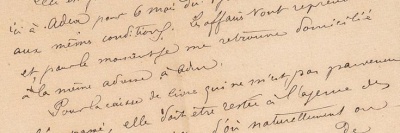 elle en
ici à Aden pour 6 mois du
aux mêmes conditions. Les affaires vont
et, pour le moment, je me retrouve domicilié
à la même adresse à Aden.
Pour la caisse de livres qui ne m'est pas parvenue
passé, elle doit être restée à l'agence des
d'où naturellement on
de